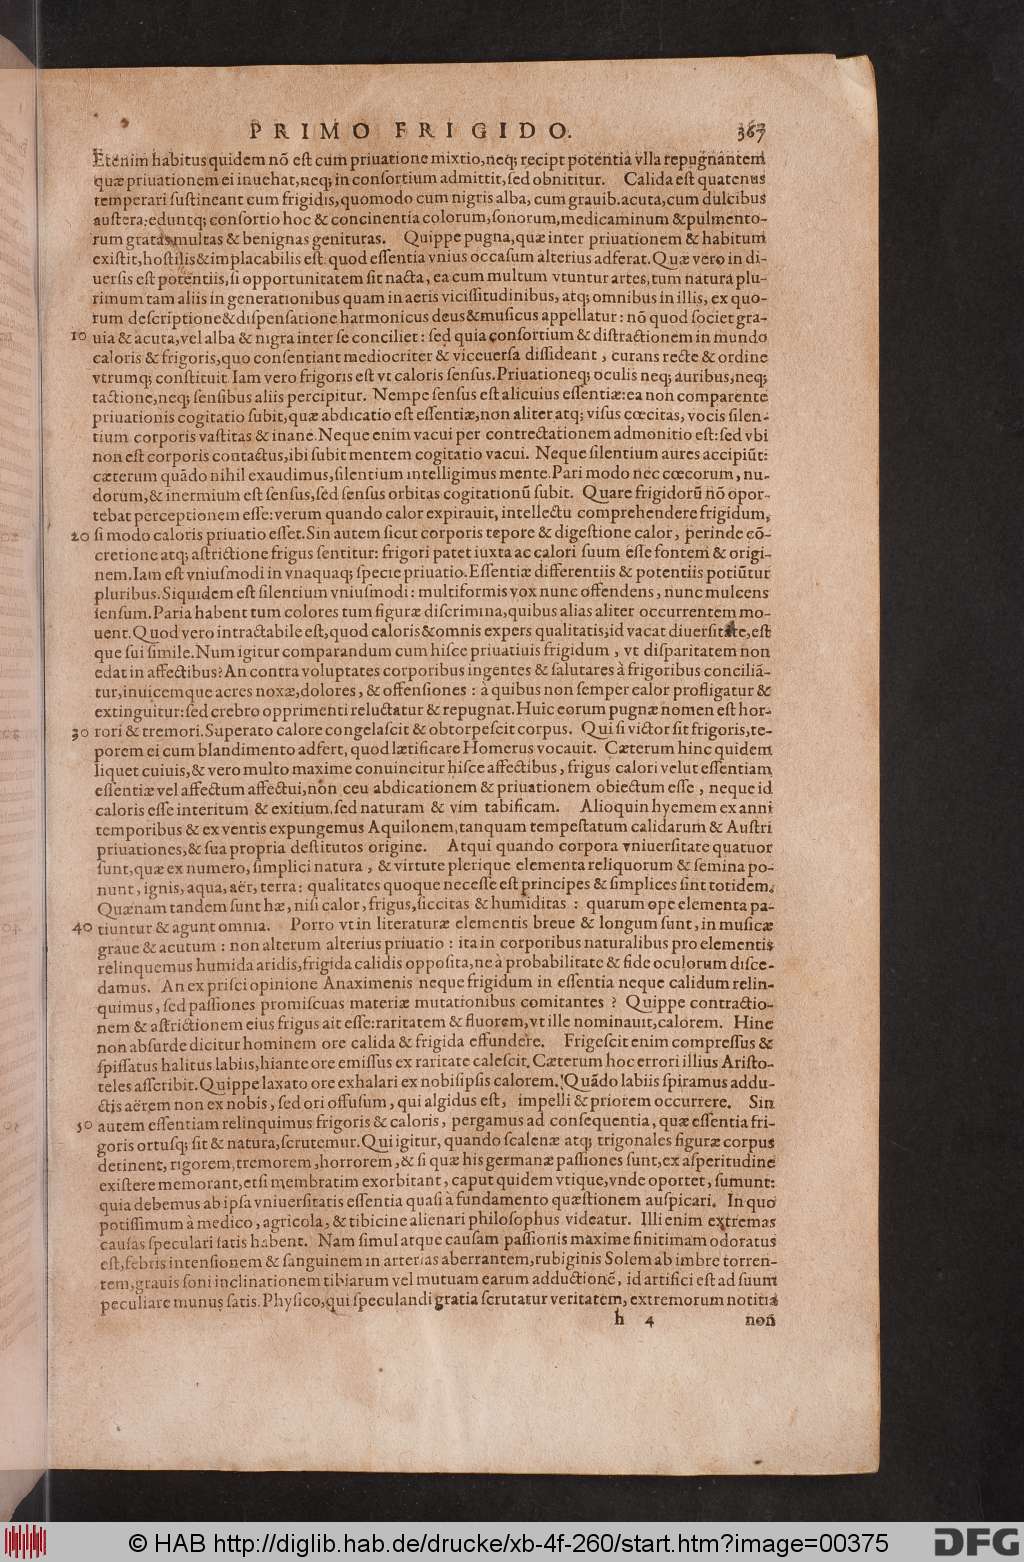 PRIMO FRIGIDO. 367
Etenim habitus quidem nõ est cum priuatione mixtio, neq; recipt potentia vlla repugnantem
quæ priuationem ei inuehat, neq; in consortium admittit, sed obnititur. Calida est quatenus
temperari sustineant cum frigidis, quomodo cum nigris alba, cum grauib. acuta, cum dulcibus
austera: eduntq; consortio hoc & concinentia colorum, sonorum, medicaminum & pulmento-
rum gratas multas & benignas genituras. Quippe pugna, quæ inter priuationem & habitum
existit, hostilis & implacabilis est: quod essentia vnius occasum alterius adferat. Quæ vero in di-
uersis est potentiis, si opportunitatem sit nacta, ea cum multum vtuntur artes, tum natura plu-
rimum tam aliis in generationibus quam in aeris vicissitudinibus, atq; omnibus in illis, ex quo-
rum descriptione & dispensatione harmonicus deus & musicus appellatur: nõ quod societ gra-
10 uia & acuta, vel alba & nigra inter se conciliet: sed quia consortium & distractionem in mundo
caloris & frigoris, quo consentiant mediocriter & viceuersa dissideant, curans recte & ordine
vtrumq; constituit. Iam vero frigoris est vt caloris sensus. Priuationeq; oculis neq; auribus, neq;
tactione, neq; sensibus aliis percipitur. Nempe sensus est alicuius essentiæ: ea non comparente
priuationis cogitatio subit, quæ abdicatio est essentiæ, non aliter atq; visus cœcitas, vocis silen-
tium corporis vastitas & inane. Neque enim vacui per contrectationem admonitio est: sed vbi
non est corporis contactus, ibi subit mentem cogitatio vacui. Neque silentium aures accipiũt:
cæterum quãdo nihil exaudimus, silentium intelligimus mente. Pari modo nec cœcorum, nu-
dorum, & inermium est sensus, sed sensus orbitas cogitationũ subit. Quare frigidorũ nõ opor-
tebat perceptionem esse: verum quando calor expirauit, intellectu comprehendere frigidum,
20 si modo caloris priuatio esset. Sin autem sicut corporis tepore & digestione calor, perinde cõ-
cretione atq; astrictione frigus sentitur: frigori patet iuxta ac calori suum esse fontem & origi-
nem. Iam est vniusmodi in vnaquaq; specie priuatio. Essentiæ differentiis & potentiis potiũtur
pluribus. Siquidem est silentium vniusmodi: multiformis vox nunc offendens, nunc mulcens
sensum. Paria habent tum colores tum figuræ discrimina, quibus alias aliter occurrentem mo-
uent. Quod vero intractabile est, quod caloris & omnis expers qualitatis; id vacat diuersitate, est
que sui simile. Num igitur comparandum cum hisce priuatiuis frigidum, vt disparitatem non
edat in affectibus? An contra voluptates corporibus ingentes & salutares à frigoribus conciliã-
tur, inuicemque acres noxæ, dolores, & offensiones: à quibus non semper calor profligatur &
extinguitur: sed crebro opprimenti reluctatur & repugnat. Huic eorum pugnæ nomen est hor-
30 rori & tremori. Superato calore congelascit & obtorpescit corpus. Qui si victor sit frigoris, te-
porem ei cum blandimento adfert, quod lætificare Homerus vocauit. Cæterum hinc quidem
liquet cuiuis, & vero multo maxime conuincitur hisce affectibus, frigus calori velut essentiam
essentiæ vel affectum affectui, non ceu abdicationem & priuationem obiectum esse, neque id
caloris esse interitum & exitium, sed naturam & vim tabificam. Alioquin hyemem ex anni
temporibus & ex ventis expungemus Aquilonem, tanquam tempestatum calidarum & Austri
priuationes, & sua propria destitutos origine. Atqui quando corpora vniuersitate quatuor
sunt, quæ ex numero, simplici natura, & virtute plerique elementa reliquorum & semina po-
nunt, ignis, aqua, aër, terra: qualitates quoque necesse est principes & simplices sint totidem.
Quænam tandem sunt hæ, nisi calor, frigus, siccitas & humiditas: quarum ope elementa pa-
40 tiuntur & agunt omnia. Porro vt in literaturæ elementis breue & longum sunt, in musicæ
graue & acutum: non alterum alterius priuatio: ita in corporibus naturalibus pro elementis
relinquemus humida aridis, frigida calidis opposita, ne à probabilitate & fide oculorum disce-
damus. An ex prisci opinione Anaximenis neque frigidum in essentia neque calidum relin-
quimus, sed passiones promiscuas materiæ mutationibus comitantes? Quippe contractio-
nem & astrictionem eius frigus ait esse: raritatem & fluorem, vt ille nominauit, calorem. Hinc
non absurde dicitur hominem ore calida & frigida effundere. Frigescit enim compressus &
spissatus halitus labiis, hiante ore emissus ex raritate calescit. Cæterum hoc errori illius Aristo-
teles asseribit. Quippe laxato ore exhalari ex nobisipsis calorem. Quãdo labiis spiramus addu-
ctis aërem non ex nobis, sed ori offusum, qui algidus est, impelli & priorem occurrere. Sin
50 autem essentiam relinquimus frigoris & caloris, pergamus ad consequentia, quæ essentia fri-
goris ortusq; sit & natura, scrutemur. Qui igitur, quando scalenæ atq; trigonales figuræ corpus
detinent, rigorem, tremorem, horrorem, & si quæ his germanæ passiones sunt, ex asperitudine
existere memorant, etsi membratim exorbitant, caput quidem vtique, vnde oportet, sumunt:
quia debemus ab ipsa vniuersitatis essentia quasi à fundamento quæstionem auspicari. In quo
potissimum à medico, agricola, & tibicine alienari philosophus videatur. Illi enim extremas
causas speculari satis habent. Nam simul atque causam passionis maxime finitimam odoratus
est, febris intensionem & sanguinem in arterias aberrantem, rubiginis Solem ab imbre torren-
tem, grauis soni inclinationem tibiarum vel mutuam earum adductionẽ, id artifici est ad suum
peculiare munus satis. Physico, qui speculandi gratia scrutatur veritatem, extremorum notitia
h 4 non
© HAB http://diglib.hab.de/drucke/xb-4f-260/start.htm?image=00375
DFG